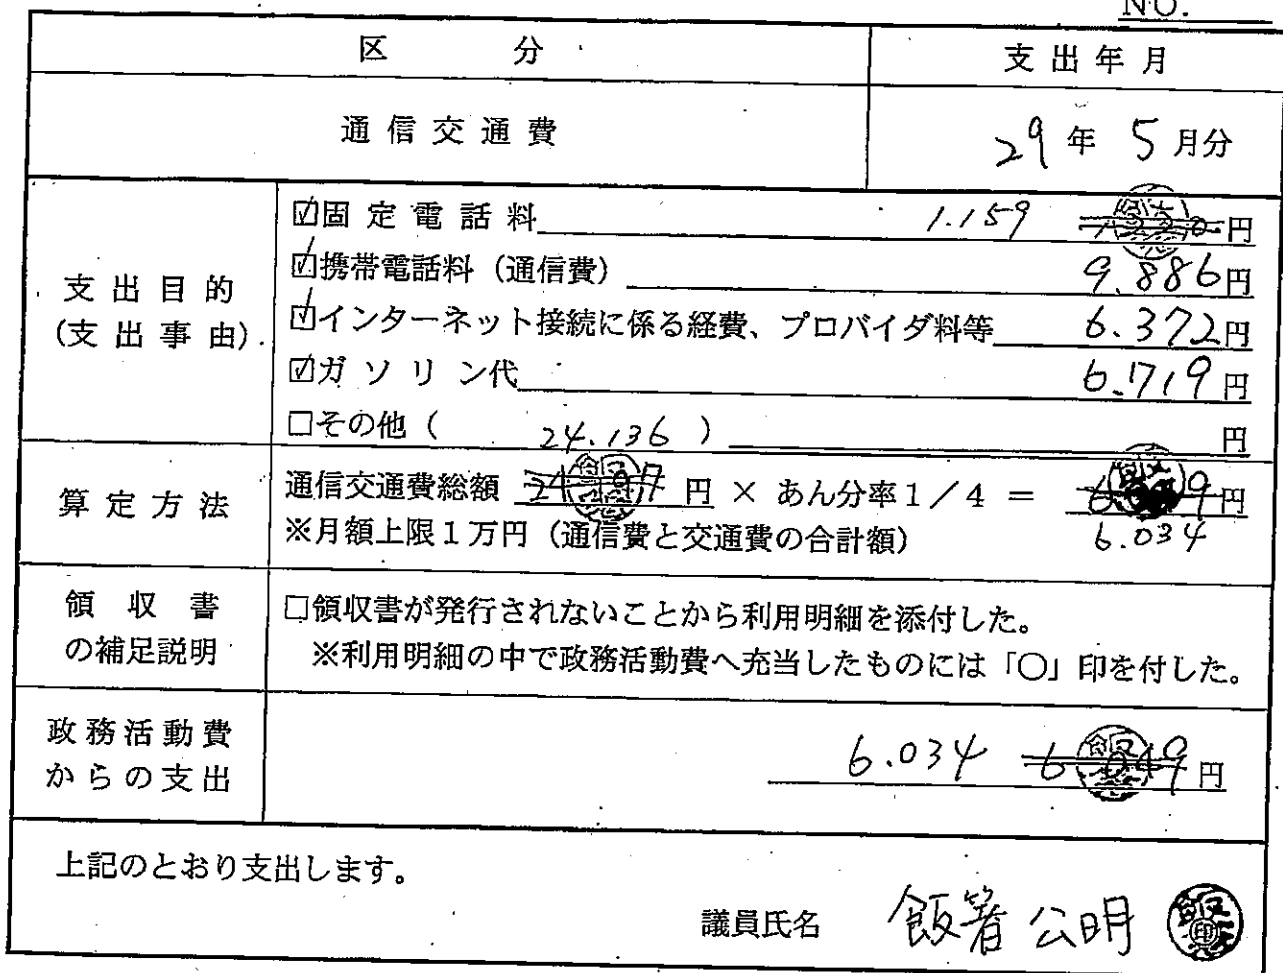 NO.
区 分 支出年月
通信交通費 29年 5月分
支出目的
(支出事由)
☑固定電話料 1.159 円
☑携帯電話料(通信費) 9.886円
☑インターネット接続に係る経費、プロバイダ料等 6.372円
☑ガソリン代 6.719円
□その他( ) 円
24.136
算定方法
通信交通費総額 円 × あん分率1/4 = 円
※月額上限1万円(通信費と交通費の合計額) 6.034
領収書
の補足説明
□領収書が発行されないことから利用明細を添付した。
※利用明細の中で政務活動費へ充当したものには「○」印を付した。
政務活動費
からの支出
6.034 円
上記のとおり支出します。
議員氏名 飯箸公明